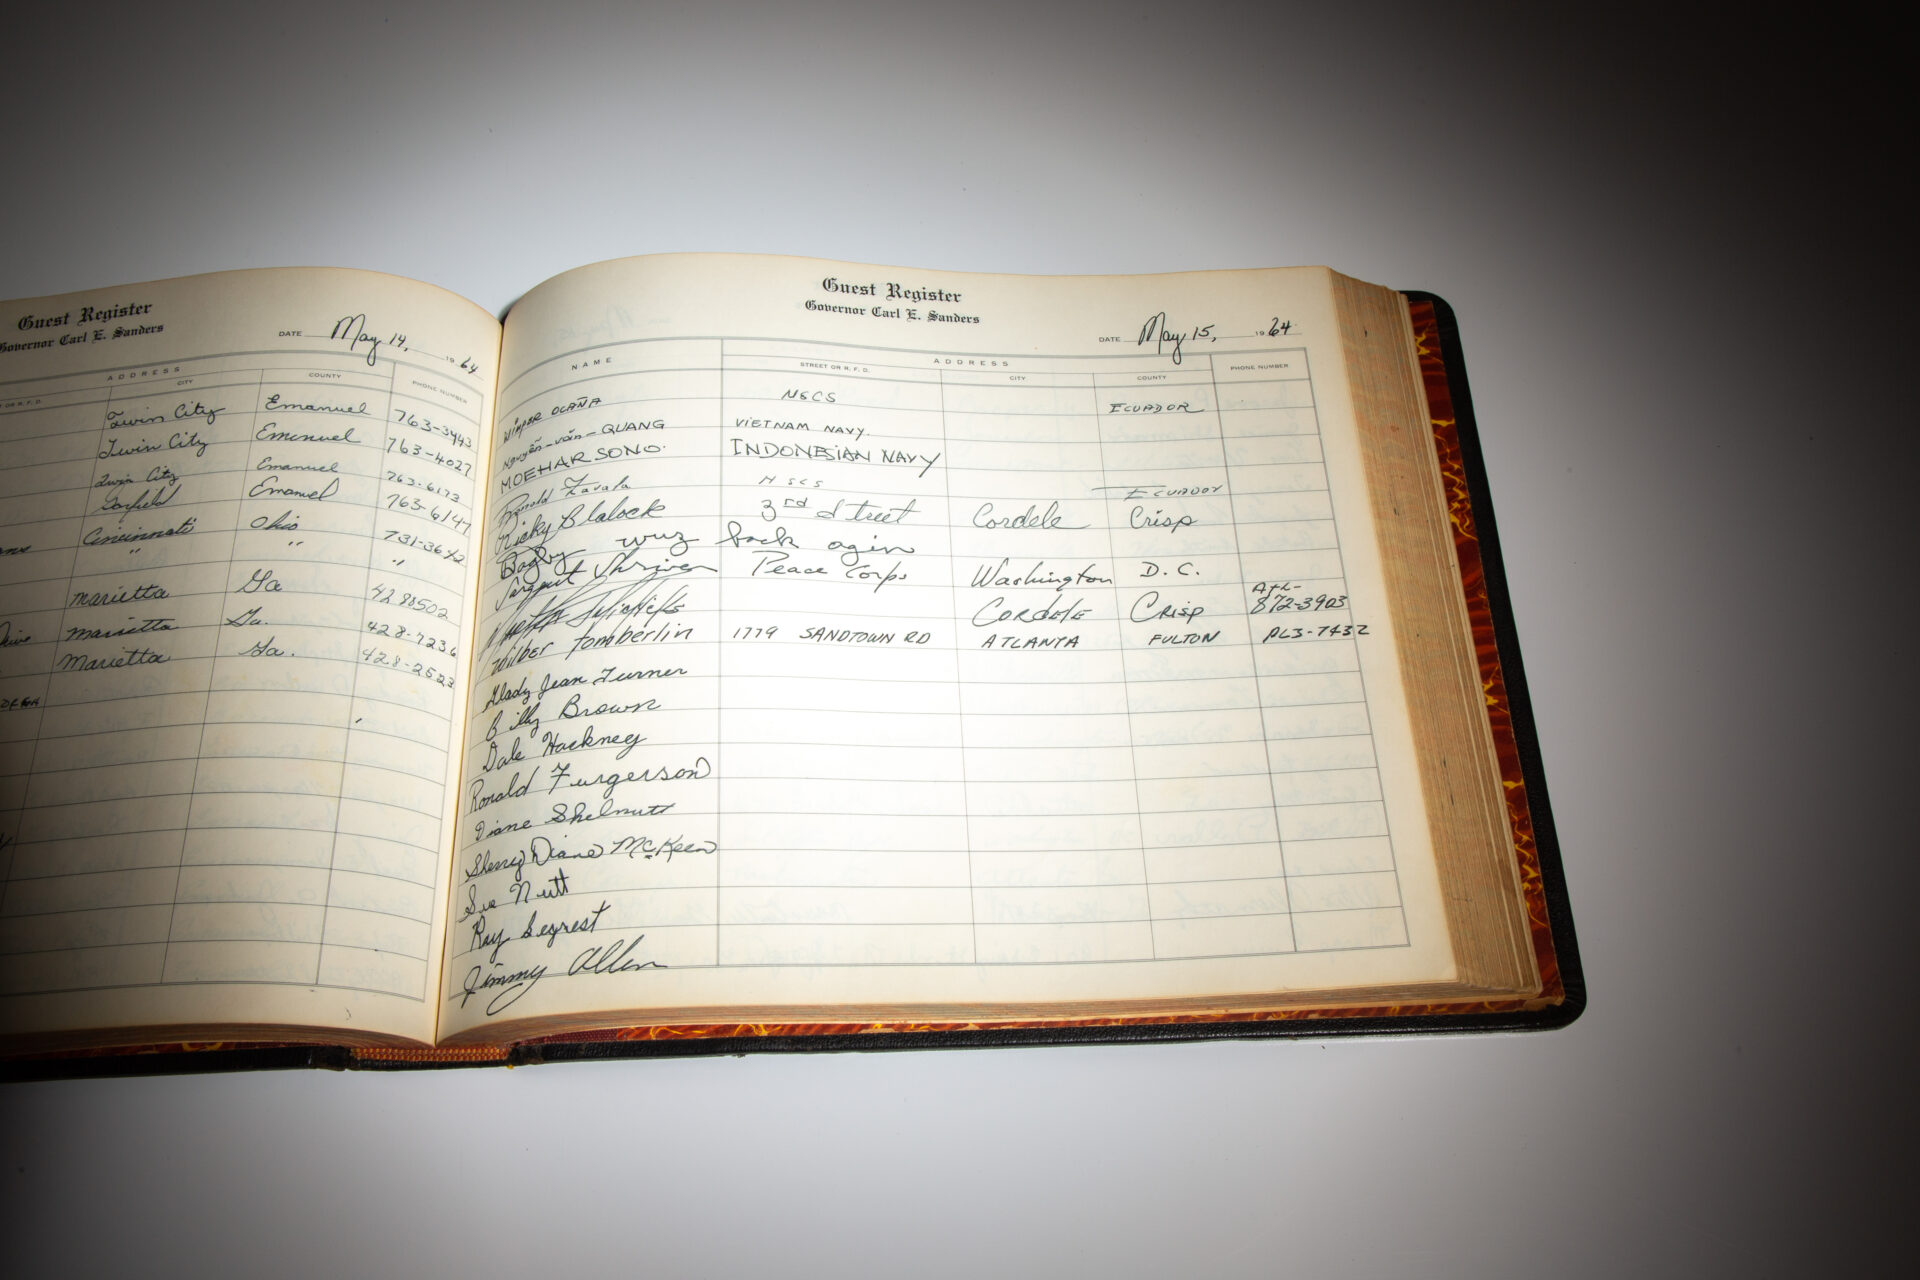 Guest Register
Governor Carl E. Sanders
DATE May 14, 1964
ADDRESS
OR R. F. D. CITY COUNTY PHONE NUMBER
Twin City Emanuel 763-3943
Twin City Emenuel 763-4027
Twin City Emanuel 763-6173
Garfield Emanuel 763-6147
Cincinnati Ohio 731-3642
" " "
Marietta Ga 4288502
Marietta Ga. 428-7236
Marietta Ga. 428-2523
Guest Register
Governor Carl E. Sanders
DATE May 15, 1964
NAME ADDRESS
STREET OR R. F. D. CITY COUNTY PHONE NUMBER
Wimper OCAÑA NSCS ECUADOR
Nguyễn-văn-QUANG VIETNAM NAVY.
MOEHARSONO. INDONESIAN NAVY
Ronald Zavala NSCS ECUADOR
Ricky Blalock 3rd Street Cordele Crisp
Bagby wuz back agin
Sargent Shriver Peace Corps Washington D.C.
CORDELE CRISP Atl- 872-3903
Wilber Tomberlin 1779 SANDTOWN RD ATLANTA FULTON PL3-7432
Glady Jean Turner
Billy Brown
Dale Hackney
Ronald Furgerson
Diane Shelnutt
Sherry Diane McKeen
Sue Nutt
Ray Segrest
Jimmy Allen